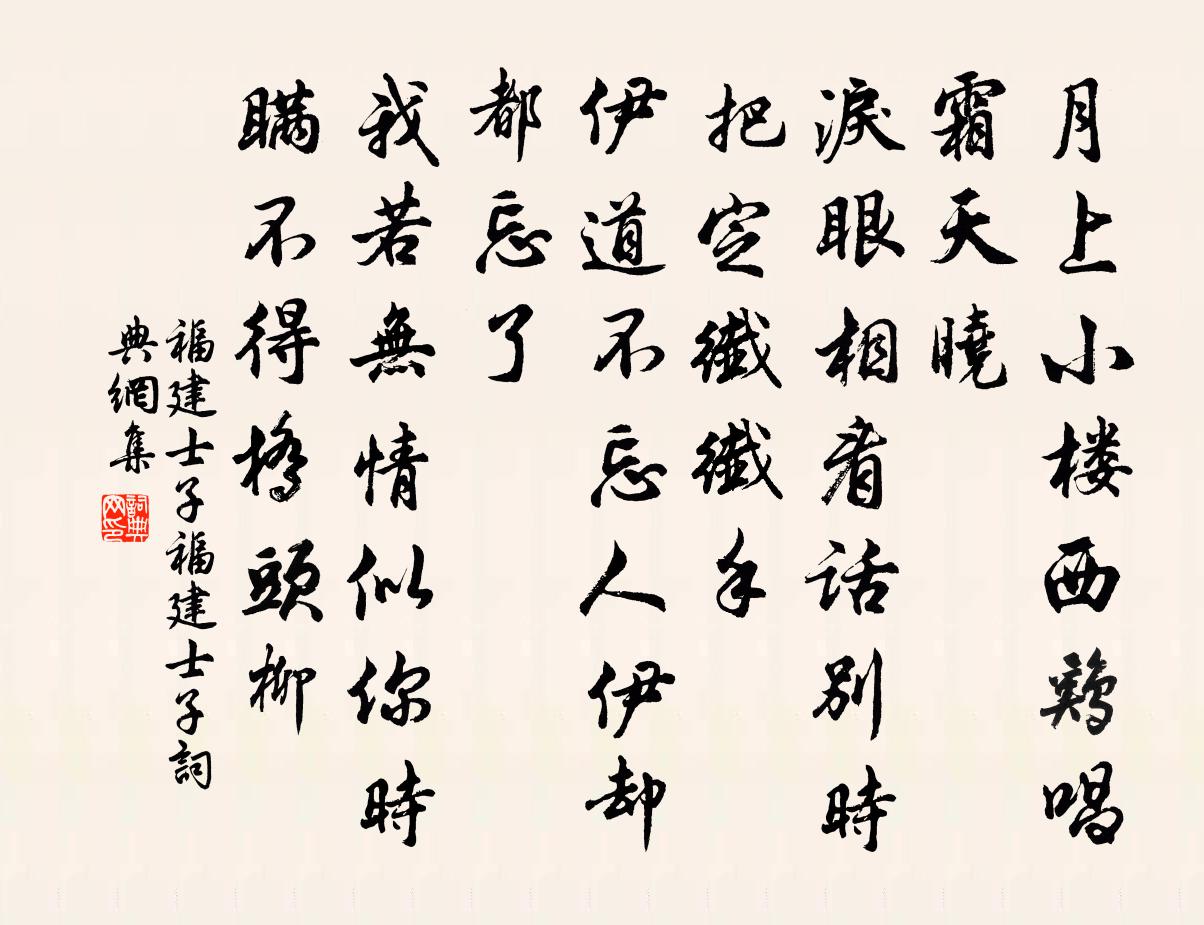 月上小楼西鷄唱
霜天曉
淚眼相看話別時
把定纖纖手
伊道不忘人伊却
都忘了
我若無情似你時
瞞不得橋頭柳
福建士子福建士子詞
典網集
詞典
网印